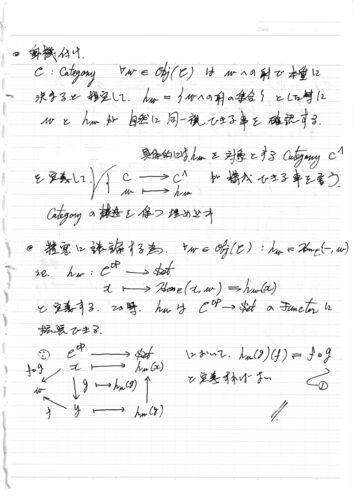 動機付け.
C : Category ∀w ∈ Obj(C) は w への射で本質に
決まると推定して. hw = {w への射の集合} とした時に
w と hw が自然に同一視できる事を確認する.
具体的には, hw を対象とする Category C^
を定義して C → C^ が構成できる事を言う.
w ↦ hw
Category の構造を保つ埋め込み
精密に議論する為. ∀w ∈ Obj(C) : hw = Hom_C(-, w)
i.e. hw : C^op → Set
x ↦ Hom_C(x, w) = hw(x)
と定義する. この時, hw は C^op → Set の Functor に
拡張できる.
∵ C^op → Set において. hw(g)(f) = f∘g
f∘g x ↦ hw(x) と定義すればよい
w ↓g ↦ hw(g) ↑ ①
f y ↦ hw(y)